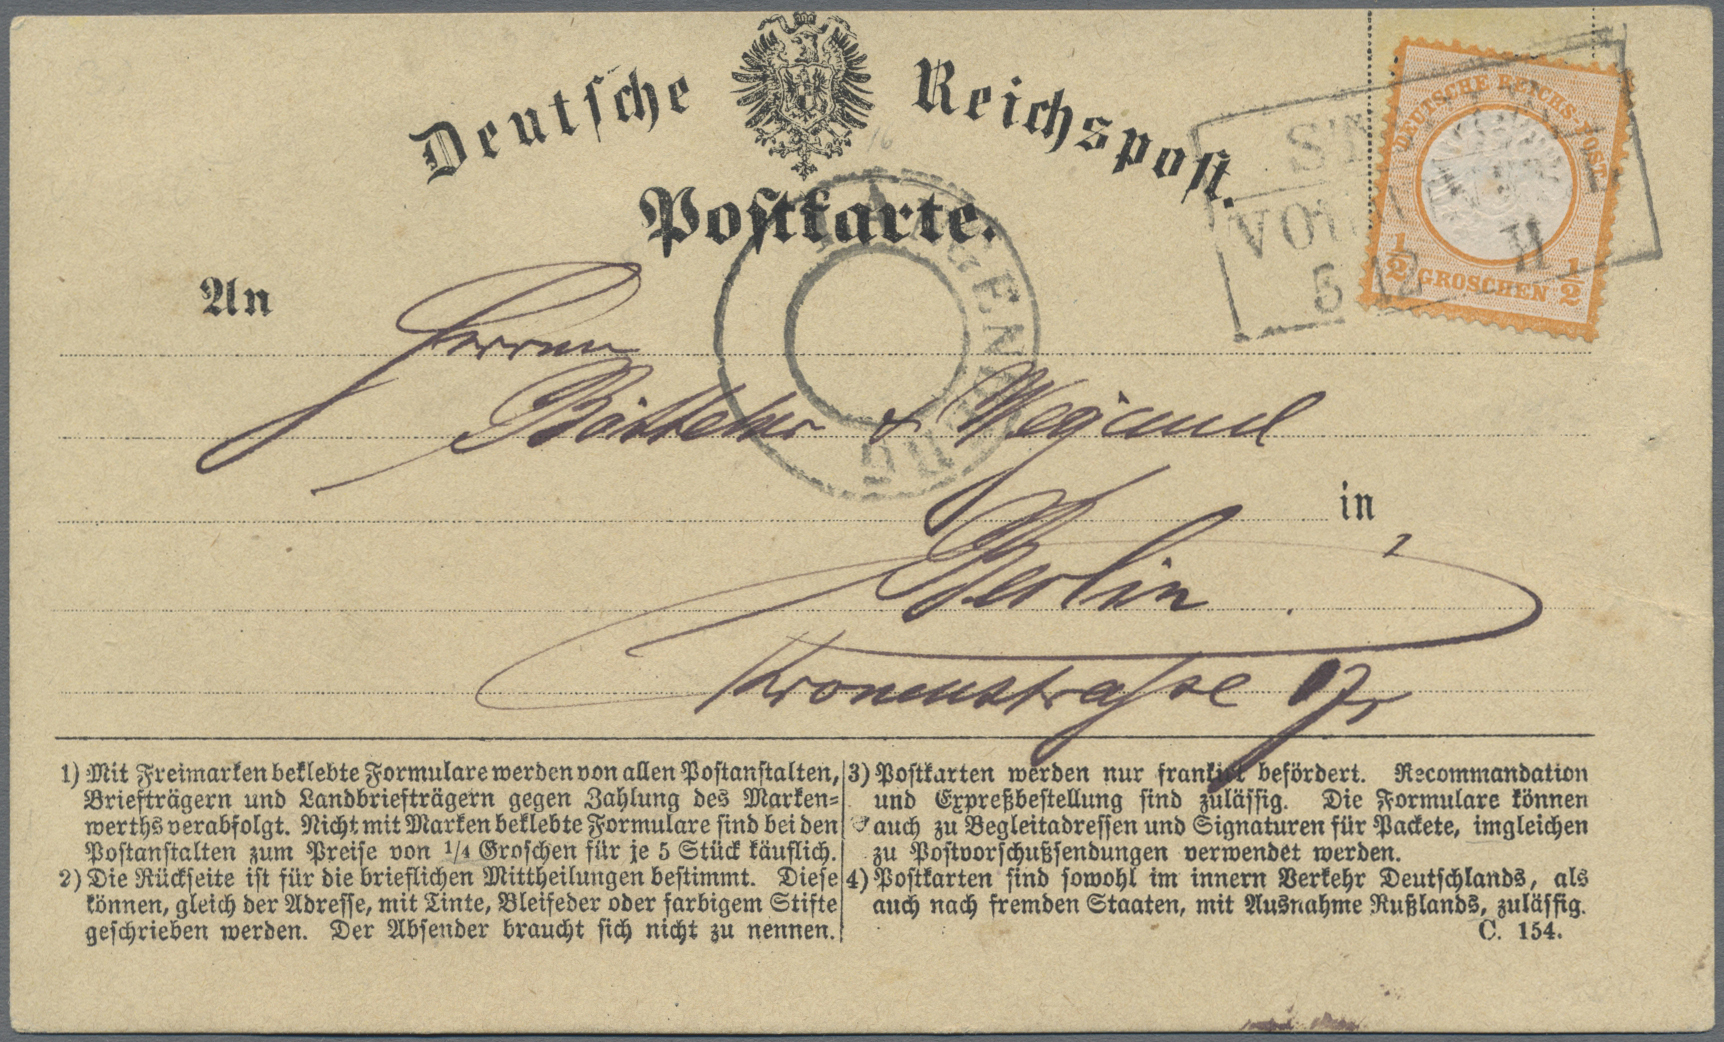 Deutsche Reichspost.
Postkarte.
DEUTSCHE REICHS-POST
1/2 GROSCHEN 1/2
LANGENBERG
An
Herren
& Wegand
in
Berlin
Kronenstrasse
1) Mit Freimarken beklebte Formulare werden von allen Postanstalten,
Briefträgern und Landbriefträgern gegen Zahlung des Marken-
werths verabfolgt. Nicht mit Marken beklebte Formulare sind bei den
Postanstalten zum Preise von 1/4 Groschen für je 5 Stück käuflich.
2) Die Rückseite ist für die brieflichen Mittheilungen bestimmt. Diese
können, gleich der Adresse, mit Tinte, Bleifeder oder farbigem Stifte
geschrieben werden. Der Absender braucht sich nicht zu nennen.
3) Postkarten werden nur frankirt befördert. Recommandation
und Expreßbestellung sind zulässig. Die Formulare können
auch zu Begleitadressen und Signaturen für Packete, imgleichen
zu Postvorschußsendungen verwendet werden.
4) Postkarten sind sowohl im innern Verkehr Deutschlands, als
auch nach fremden Staaten, mit Ausnahme Rußlands, zulässig.
C. 154.